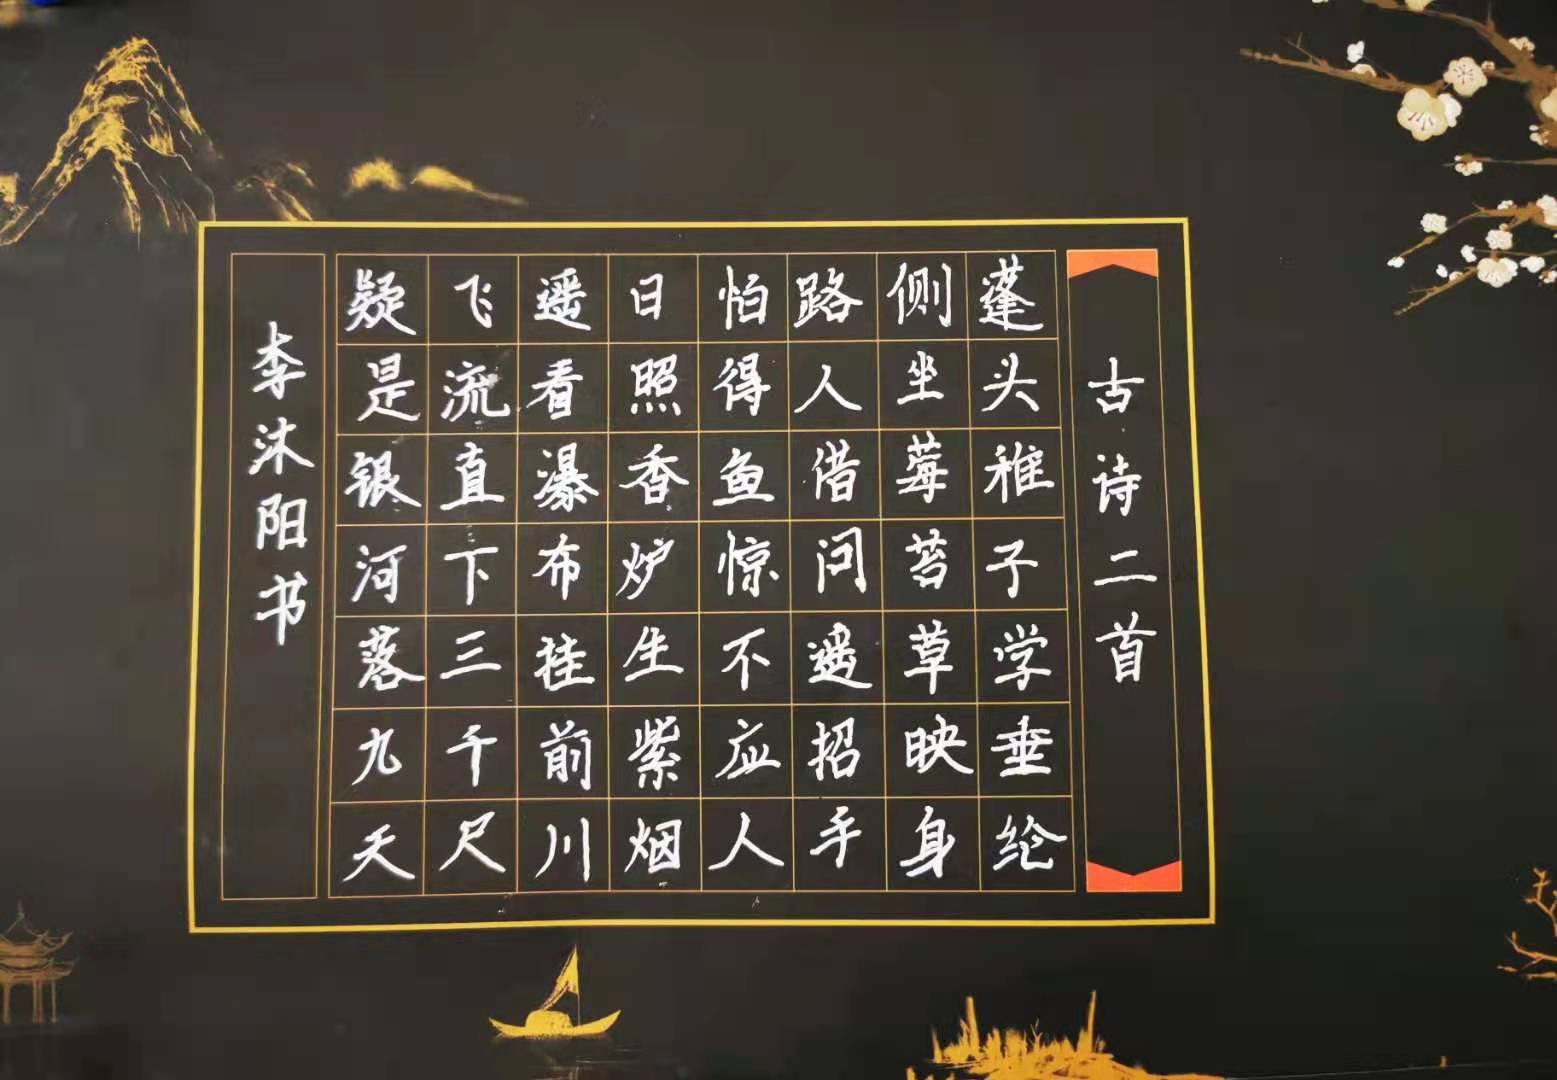 古诗二首
蓬头稚子学垂纶
侧坐莓苔草映身
路人借问遥招手
怕得鱼惊不应人
日照香炉生紫烟
遥看瀑布挂前川
飞流直下三千尺
疑是银河落九天
李沐阳书